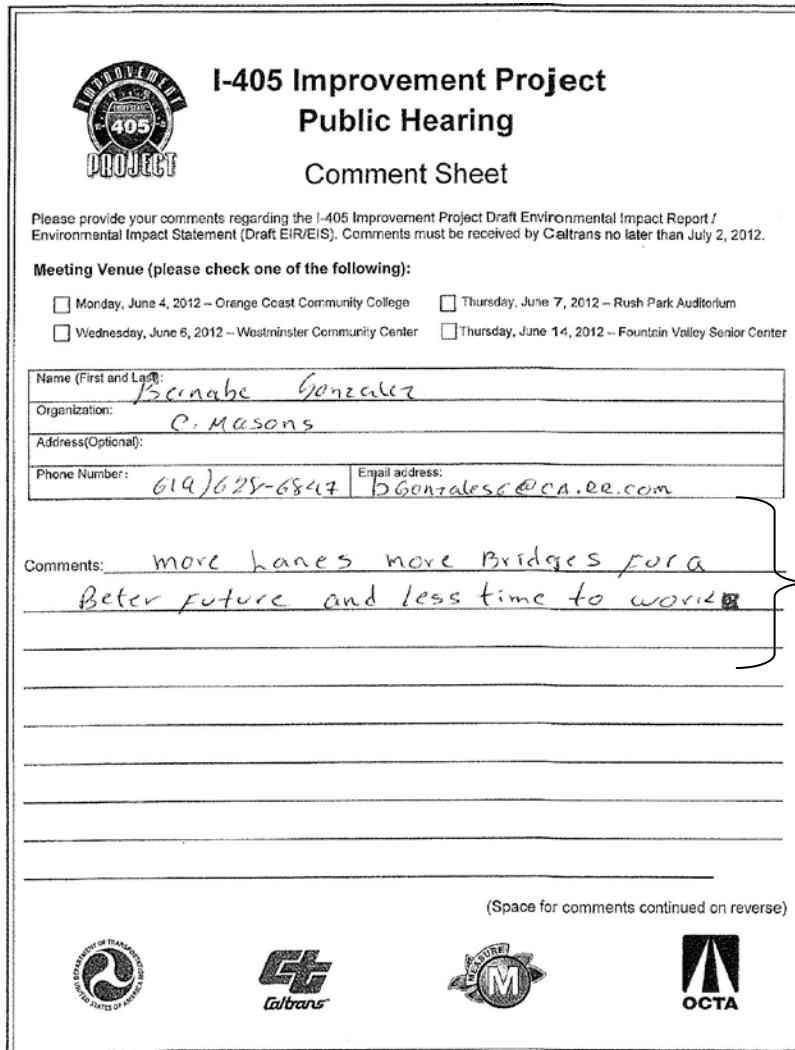 IMPROVEMENT
405
PROJECT
I-405 Improvement Project
Public Hearing
Comment Sheet
Please provide your comments regarding the I-405 Improvement Project Draft Environmental Impact Report /
Environmental Impact Statement (Draft EIR/EIS). Comments must be received by Caltrans no later than July 2, 2012.
Meeting Venue (please check one of the following):
Monday, June 4, 2012 – Orange Coast Community College
Thursday, June 7, 2012 – Rush Park Auditorium
Wednesday, June 6, 2012 – Westminster Community Center
Thursday, June 14, 2012 – Fountain Valley Senior Center
Name (First and Last): Bernabe Gonzalez
Organization: C. Masons
Address(Optional):
Phone Number: 619)628-6847
Email address: bGonzales6@CA.RR.com
Comments: more Lanes more Bridges For a
Beter Future and less time to work
(Space for comments continued on reverse)
DEPARTMENT OF TRANSPORTATION
UNITED STATES OF AMERICA
Caltrans
MEASURE
M
OCTA